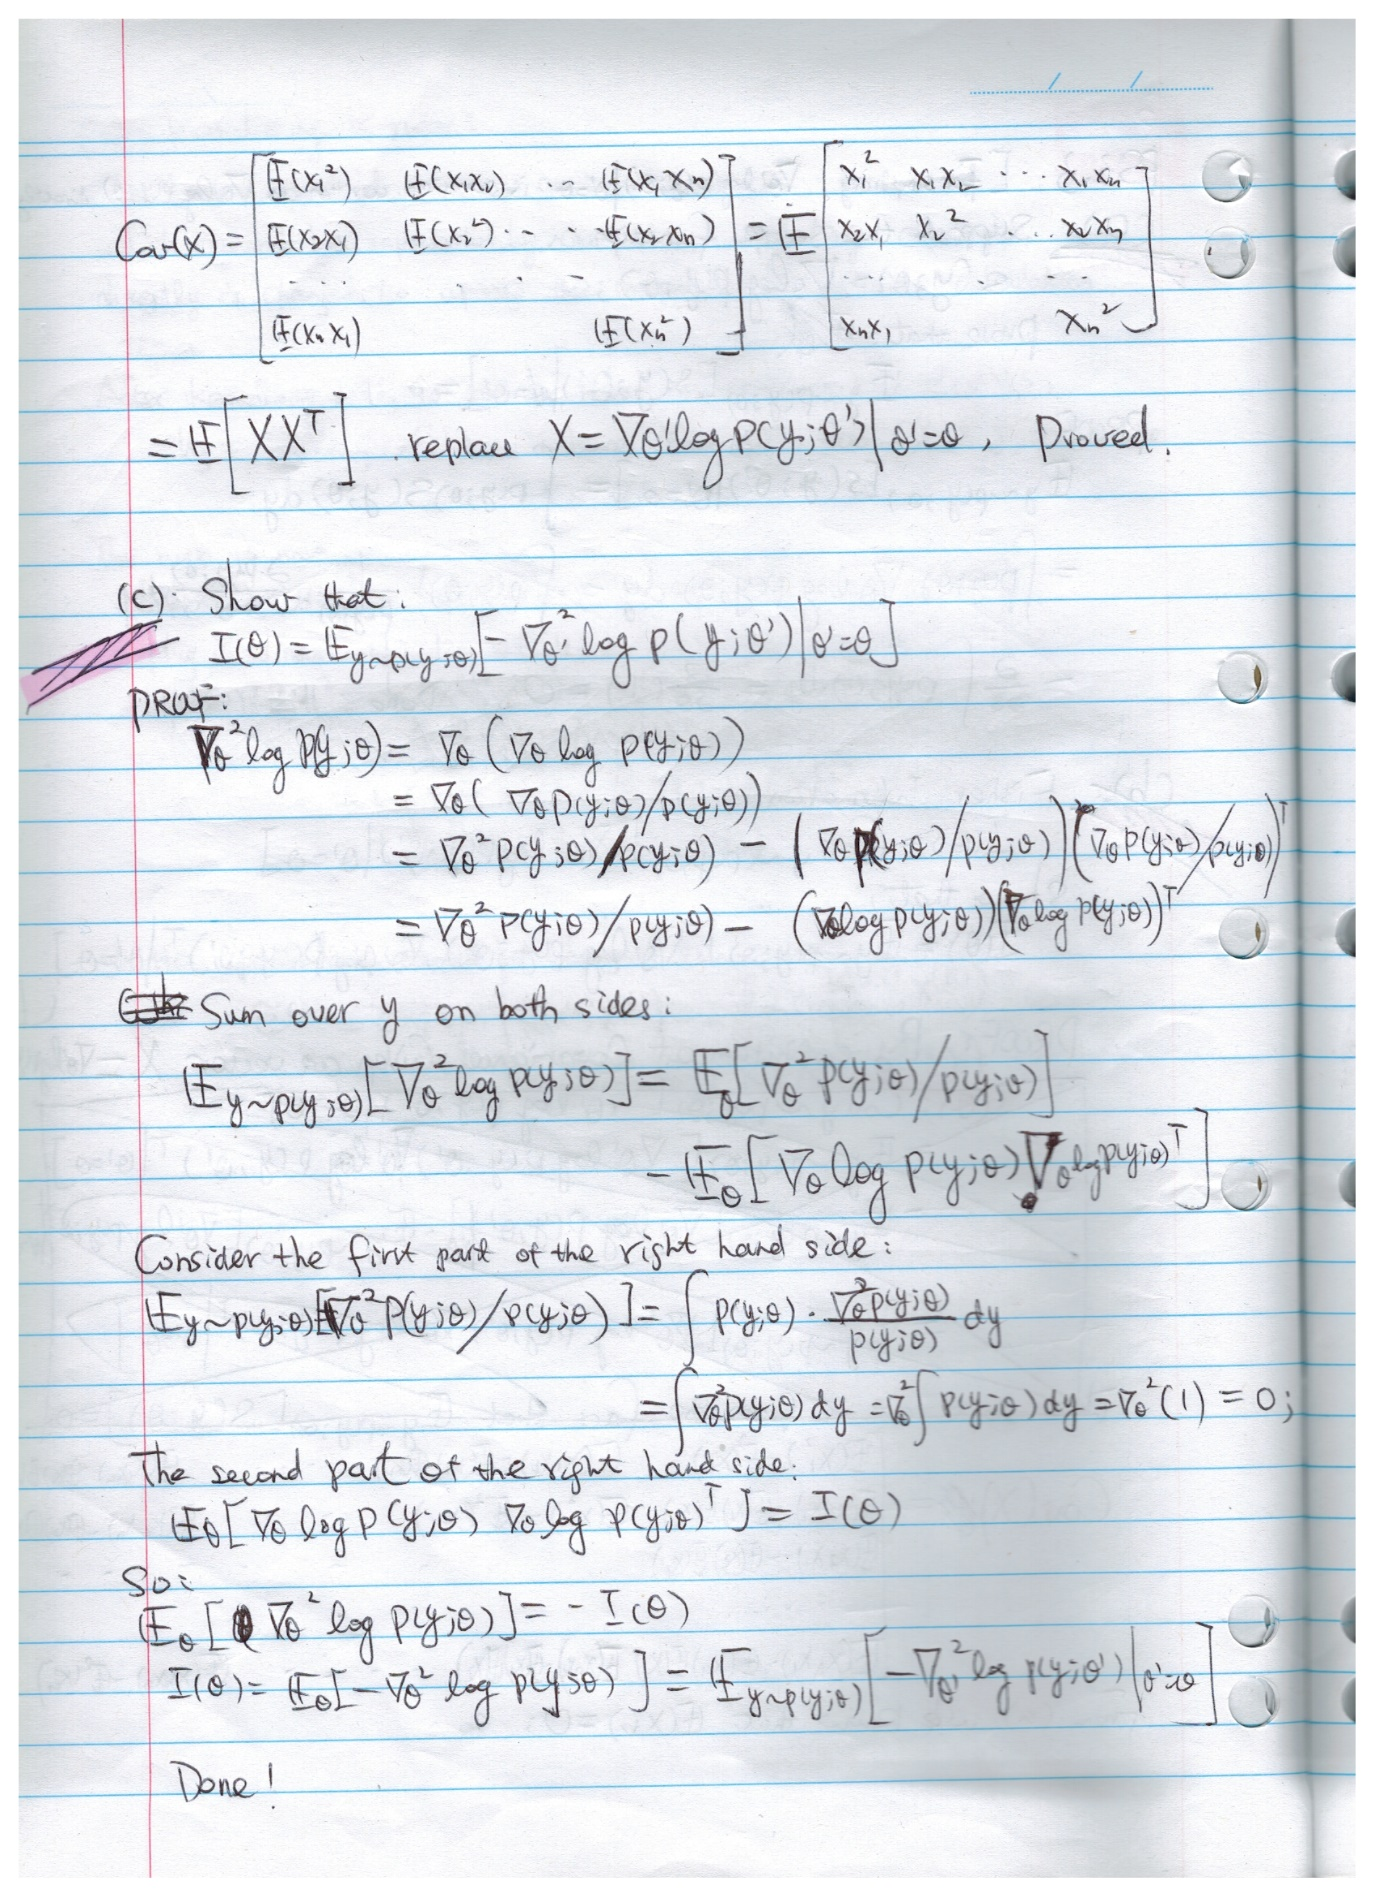 Cov(X) = [ E(X₁²) E(X₁X₂) ... E(X₁Xₙ) ; E(X₂X₁) E(X₂²) ... E(X₂Xₙ) ; ... ; E(XₙX₁) E(Xₙ²) ] = E [ X₁² X₁X₂ ... X₁Xₙ ; X₂X₁ X₂² ... X₂Xₙ ; ... ; XₙX₁ Xₙ² ]
= E[XXᵀ] replace X = ∇θ' log p(y;θ')|θ'=θ, Proved.
(c). Show that:
I(θ) = E y~p(y;θ)[-∇θ'² log p(y;θ')|θ'=θ]
PROOF:
∇θ² log p(y;θ) = ∇θ (∇θ log p(y;θ))
= ∇θ( ∇θ p(y;θ)/p(y;θ))
= ∇θ² p(y;θ)/p(y;θ) - (∇θ p(y;θ)/p(y;θ))(∇θ p(y;θ)/p(y;θ))ᵀ
= ∇θ² p(y;θ)/p(y;θ) - (∇θ log p(y;θ))(∇θ log p(y;θ))ᵀ
Sum over y on both sides:
E y~p(y;θ)[∇θ² log p(y;θ)] = Eθ[∇θ² p(y;θ)/p(y;θ)]
- Eθ[∇θ log p(y;θ) ∇θ log p(y;θ)ᵀ]
Consider the first part of the right hand side:
E y~p(y;θ)[∇θ² p(y;θ)/p(y;θ)] = ∫ p(y;θ) · ∇θ² p(y;θ)/p(y;θ) dy
= ∫ ∇θ² p(y;θ) dy = ∇θ² ∫ p(y;θ) dy = ∇θ²(1) = 0;
The second part of the right hand side:
Eθ[∇θ log p(y;θ) ∇θ log p(y;θ)ᵀ] = I(θ)
So:
Eθ[∇θ² log p(y;θ)] = - I(θ)
I(θ) = Eθ[-∇θ² log p(y;θ)] = E y~p(y;θ)[-∇θ'² log p(y;θ')|θ'=θ]
Done!